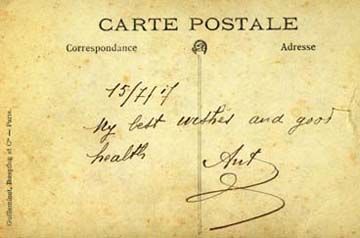 CARTE POSTALE
Correspondance
Adresse
15/7/17
My best wishes and good
health
Ant
Guilleminot, Boespflug et Cie — Paris.